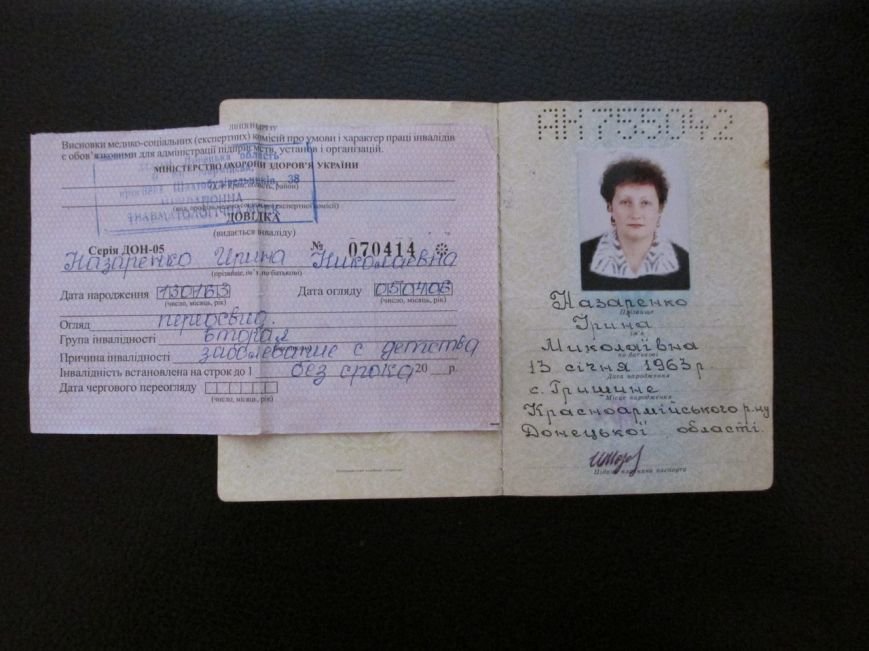 Висновки медико-соціальних (експертних) комісій про умови і характер праці інвалідів
є обов'язковими для адміністрації підприємств, установ і організацій.
МІНІСТЕРСТВО ОХОРОНИ ЗДОРОВ'Я УКРАЇНИ
область
38
ДОВІДКА
(видається інваліду)
Серія ДОН-05 № 070414
Назаренко Ирина Николаевна
(прізвище, ім'я, по батькові)
Дата народження 130163 Дата огляду 050406
(число, місяць, рік) (число, місяць, рік)
Огляд
Група інвалідності вторая
Причина інвалідності заболевание с детства
Інвалідність встановлена на строк до 1 без срока 20 р.
Дата чергового переогляду
(число, місяць, рік)
755042
Назаренко
Прізвище
Ірина
Ім'я
Миколаївна
по батькові
13 січня 1963 р.
Дата народження
с. Гришине
Місце народження
Красноармійського р-ну
Донецької області.
Підпис власника паспорта